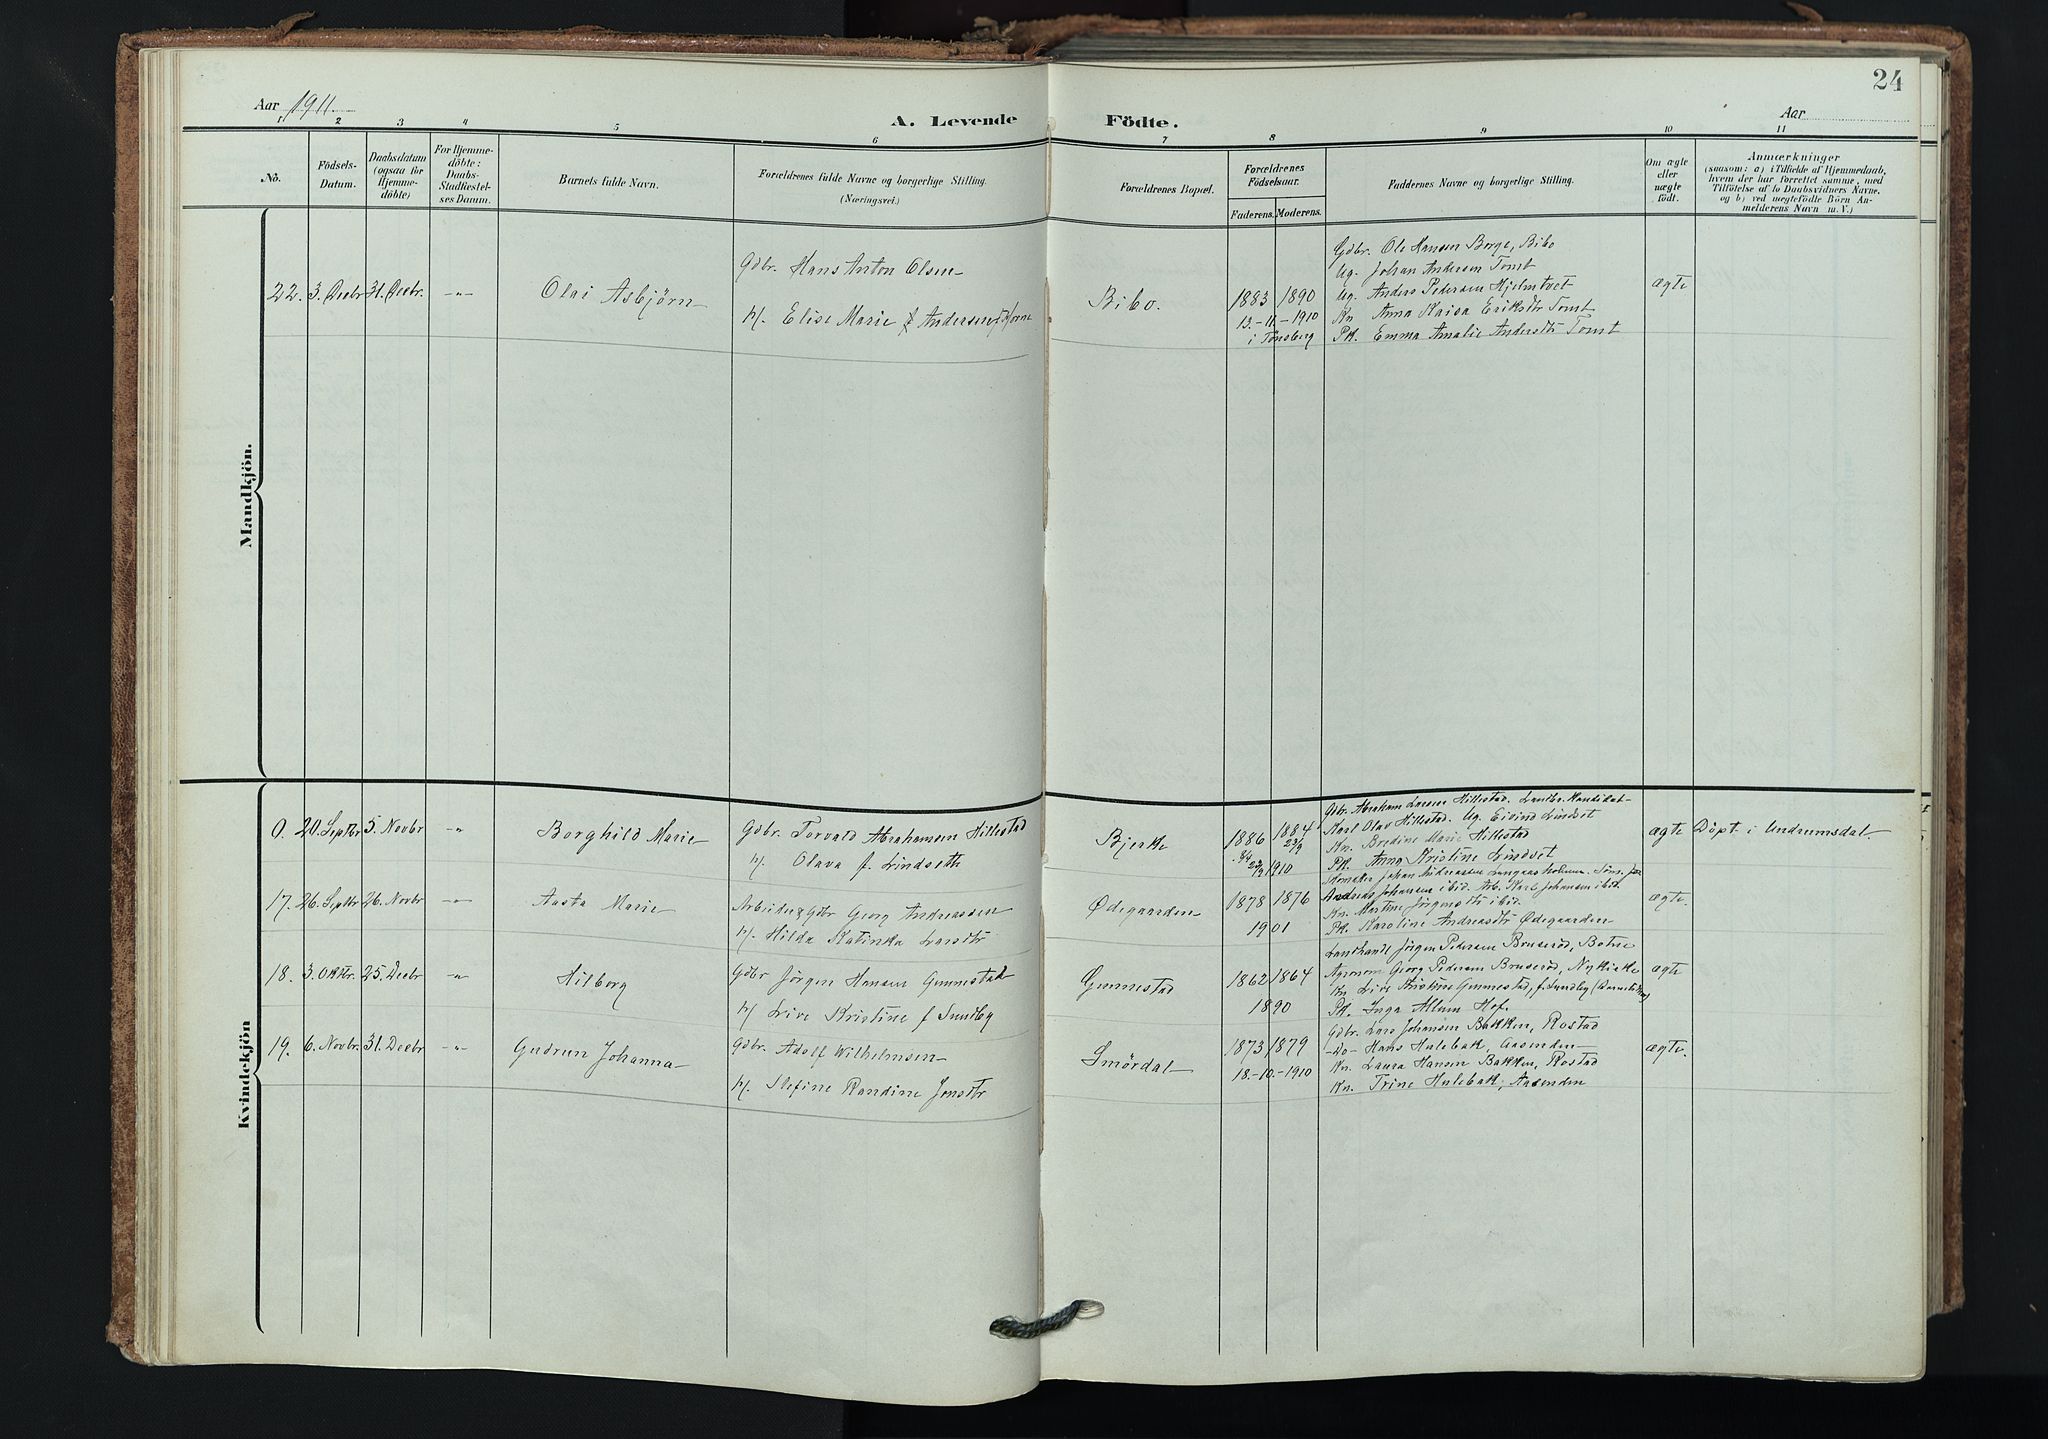 24
Aar 1911.
A. Levende Födte.
Aar
1 2 3 4 5 6 7 8 9 10 11
No.
Födsels-Datum.
Daabsdatum (ogsaa for Hjemmedöbte)
For Hjemmedöbte: Daabs-Stadfæstelses Datum.
Barnets fulde Navn.
Forældrenes fulde Navne og borgerlige Stilling.
(Næringsvei.)
Forældrenes Bopæl.
Forældrenes Födselsaar.
Faderens. Moderens.
Faddernes Navne og borgerlige Stilling.
Om ægte eller uægte født.
Anmærkninger
(saasom: a) i Tilfælde af Hjemmedaab,
hvem der har forrettet samme, med
Tilföielse af to Daabsvidners Navne,
og b) ved uægtefödte Börn An-
melderens Navn m. V.)
Mandkjön.
22. 3. Decbr 31. Decbr. -"- Olai Asbjörn
Gdbr. Hans Anton Olsen
H. Elise Marie f. Andersen
Bibo.
1883 1890
13.-11.-1910
i Tönsberg
Gdbr. Ole Hansen Borge, Bibo
Ug. Johan Andersen Tomt
Ug. Anders Pedersen Hjelmtvet
Kn Anna Kaisa Eriksdtr Tomt
Pk. Emma Amalie Andersdtr Tomt
ægte
Kvindekjön
0. 20. Septbr 5. Novbr -"- Borghild Marie
Gdbr. Torvald Abrahamsen Hillestad
H. Olava f. Lindseth
Bjerke
1886 1884
1910
Gdbr. Abraham Larsen Hillestad. Landbr. Kandidat
Karl Olav Hillestad. Ug. Eivind Lindset
Kn. Bredine Marie Hillestad
Pk. Anna Kristine Lindset
ægte Döpt i Undrumsdal
17. 26. Septbr 26. Novbr -"- Aasta Marie
Arbeider & Gdbr Georg Andreassen
H. Hilda Katinka Larsdtr
Ødegaarden
1878 1876
1901
Skomaker Johan Andreassen
Andreas Johansen ibid. Arb. Karl Johansen ibid.
Kn. Martine Jörgensdtr ibid.
Pk. Karoline Andreasdtr Ødegaarden
ægte.
18. 3. Oktbr. 25. Decbr -"- Hilborg
Gdbr Jörgen Hansen Gunnestad
H. Live Kristine f Sundby
Gunnestad
1862 1864
1890
Landhandl Jörgen Pedersen Bruseröd, Botne
Agronom Georg Pedersen Bruseröd, Nykirke
Kn Live Kristine Gunnestad, f. Sundby
Pk. Inga Allum Hof.
ægte
19. 6. Novbr. 31. Decbr -"- Gudrun Johanna
Gdbr. Adolf Wilhelmsen
H. Stefine Randine Jensdtr
Smördal
1873 1879
18.-10.-1910
Gdbr. Lars Johansen Bakken, Rostad
-Do- Hans Hulebak, Aasenden
Kn. Laura Hansen Bakken, Rostad
Kn. Trine Hulebak, Aasenden
ægte.